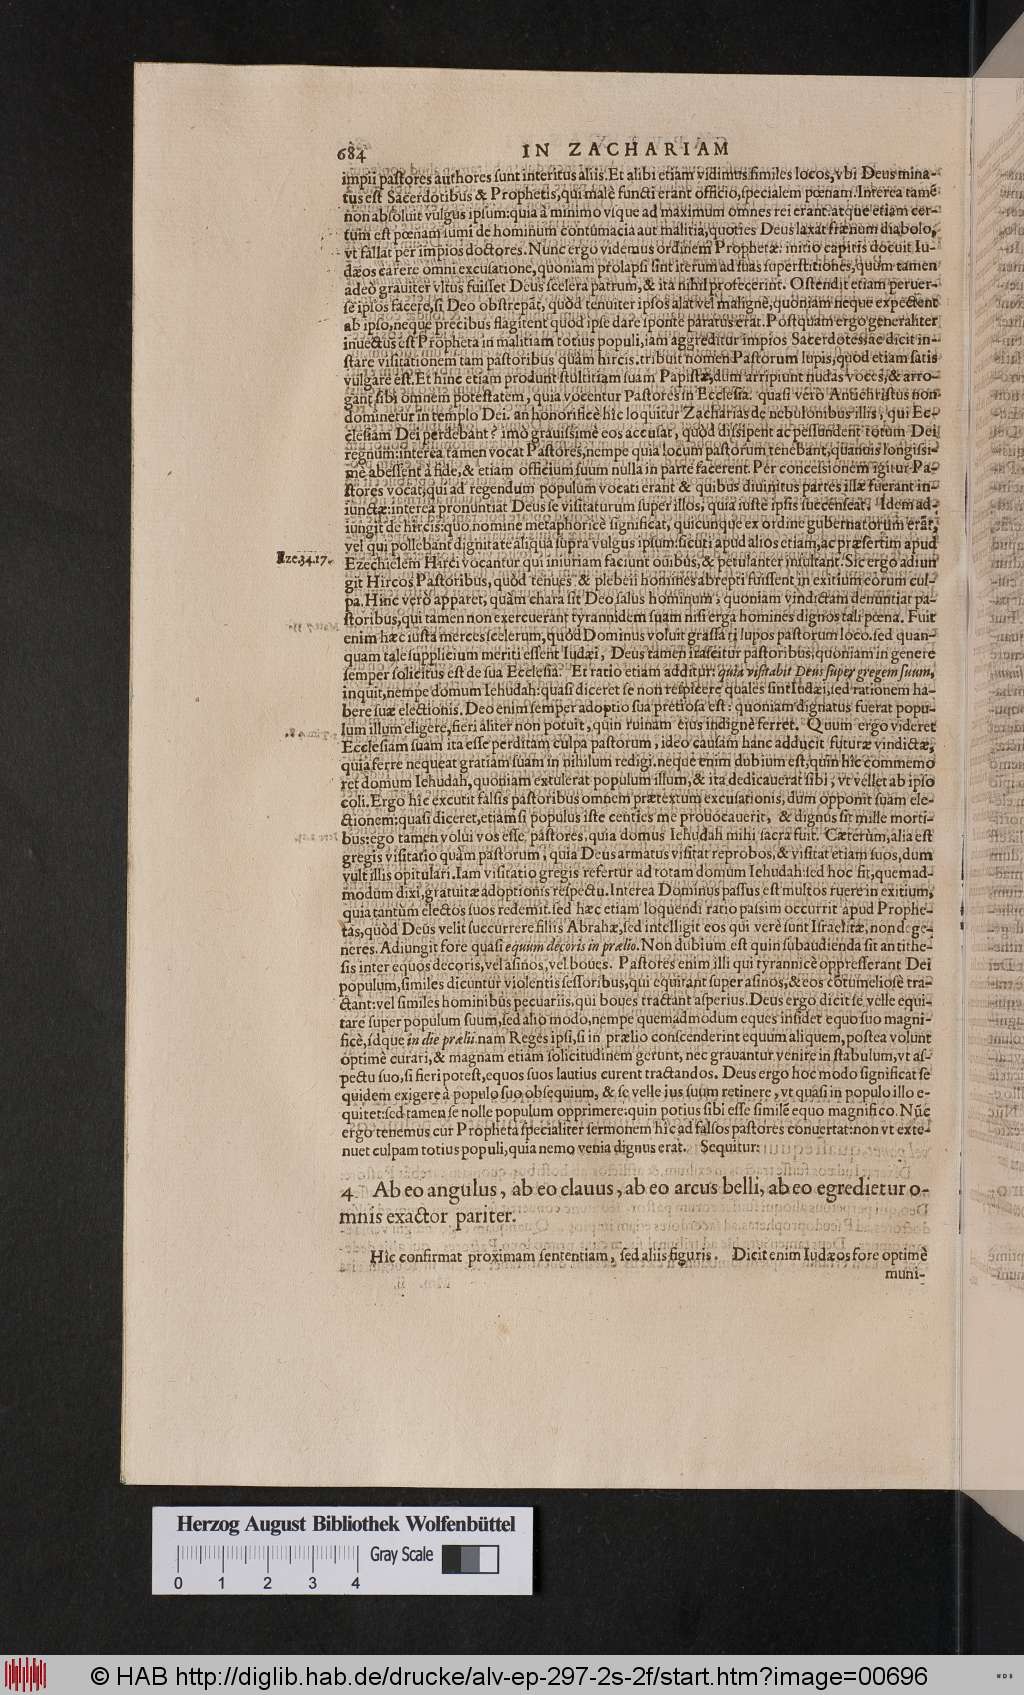 684 IN ZACHARIAM
impii pastores authores sunt interitus aliis. Et alibi etiam vidimus similes locos, vbi Deus mina-
tus est Sacerdotibus & Prophetis, qui malè functi erant officio, specialem pœnam. Interea tamē
non absoluit vulgus ipsum: quia à minimo vsque ad maximum omnes rei erant. atque etiam cer-
tum est pœnam sumi de hominum contumacia aut malitia, quoties Deus laxat frænum diabolo,
vt fallat per impios doctores. Nunc ergo videmus ordinem Prophetæ: initio capitis docuit Iu-
dæos carere omni excusatione, quoniam prolapsi sint iterum ad suas superstitiones, quum tamen
adeò grauiter vltus fuisset Deus scelera patrum, & ita nihil profecerint. Ostendit etiam peruer-
sè ipsos facere, si Deo obstrepāt, quòd tenuiter ipsos alat vel malignè, quoniam neque expectent
ab ipso, neque precibus flagitent quod ipse dare sponte paratus erat. Postquam ergo generaliter
inuectus est Propheta in malitiam totius populi, iam aggreditur impios Sacerdotes: ac dicit in-
stare visitationem tam pastoribus quàm hircis. tribuit nomen Pastorum lupis, quod etiam satis
vulgare est. Et hinc etiam produnt stultitiam suam Papistæ, dum arripiunt nudas voces, & arro-
gant sibi omnem potestatem, quia vocentur Pastores in Ecclesia. quasi verò Antichristus non
dominetur in templo Dei. an honorificè hîc loquitur Zacharias de nebulonibus illis, qui Ec-
clesiam Dei perdebant? imò grauissimè eos accusat, quòd dissipent ac pessundent totum Dei
regnum: interea tamen vocat Pastores, nempe quia locum pastorum tenebant, quamuis longissi-
mè abessent à fide, & etiam officium suum nulla in parte facerent. Per concessionem igitur Pa-
stores vocat, qui ad regendum populum vocati erant & quibus diuinitus partes illæ fuerant in-
iunctæ: interea pronuntiat Deus se visitaturum super illos, quia iuste ipsis succenseat. Idem ad-
iungit de hircis: quo nomine metaphoricè significat, quicunque ex ordine gubernatorum erāt,
vel qui pollebant dignitate aliqua supra vulgus ipsum: sicuti apud alios etiam, ac præsertim apud
Eze.34.17. Ezechielem Hirci vocantur qui iniuriam faciunt ouibus, & petulanter insultant. Sic ergo adiun
git Hircos Pastoribus, quòd tenues & plebeii homines abrepti fuissent in exitium eorum cul-
pa. Hinc verò apparet, quàm chara sit Deo salus hominum, quoniam vindictam denuntiat pa-
storibus, qui tamen non exercuerant tyrannidem suam nisi erga homines dignos tali pœna. Fuit
enim hæc iusta merces scelerum, quòd Dominus voluit grassari lupos pastorum loco. sed quan-
quam tale supplicium meriti essent Iudæi, Deus tamen irascitur pastoribus, quoniam in genere
semper solicitus est de sua Ecclesia. Et ratio etiam additur: quia visitabit Deus super gregem suum,
inquit, nempe domum Iehudah: quasi diceret se non respicere quales sint Iudæi, sed rationem ha-
bere suæ electionis. Deo enim semper adoptio sua pretiosa est: quoniam dignatus fuerat popu-
lum illum eligere, fieri aliter non potuit, quin ruinam eius indignè ferret. Quum ergo videret
Ecclesiam suam ita esse perditam culpa pastorum, ideo causam hanc adducit futuræ vindictæ,
quia ferre nequeat gratiam suam in nihilum redigi. neque enim dubium est, quin hîc commemo
ret domum Iehudah, quoniam extulerat populum illum, & ita dedicauerat sibi, vt vellet ab ipso
coli. Ergo hîc excutit falsis pastoribus omnem prætextum excusationis, dum opponit suam ele-
ctionem: quasi diceret, etiamsi populus iste centies me prouocauerit, & dignus sit mille morti-
bus: ego tamen volui vos esse pastores, quia domus Iehudah mihi sacra fuit. Cæterùm, alia est
gregis visitatio quàm pastorum, quia Deus armatus visitat reprobos, & visitat etiam suos, dum
vult illis opitulari. Iam visitatio gregis refertur ad totam domum Iehudah: sed hoc fit, quemad-
modum dixi, gratuitæ adoptionis respectu. Interea Dominus passus est multos ruere in exitium,
quia tantùm electos suos redemit. sed hæc etiam loquendi ratio passim occurrit apud Prophe-
tas, quòd Deus velit succurrere filiis Abrahæ, sed intelligit eos qui verè sunt Israelitæ, non dege-
neres. Adiungit fore quasi equum decoris in prælio. Non dubium est quin subaudienda sit antithe-
sis inter equos decoris, vel asinos, vel boues. Pastores enim illi qui tyrannicè oppresserant Dei
populum, similes dicuntur violentis sessoribus, qui equitant super asinos, & eos cōtumeliosè tra-
ctant: vel similes hominibus pecuariis, qui boues tractant asperius. Deus ergo dicit se velle equi-
tare super populum suum, sed alio modo, nempe quemadmodum eques insidet equo suo magni-
ficè, idque in die prælii. nam Reges ipsi, si in prælio conscenderint equum aliquem, postea volunt
optimè curari, & magnam etiam solicitudinem gerunt, nec grauantur venire in stabulum, vt as-
pectu suo, si fieri potest, equos suos lautius curent tractandos. Deus ergo hoc modo significat se
quidem exigere à populo suo obsequium, & se velle ius suum retinere, vt quasi in populo illo e-
quitet: sed tamen se nolle populum opprimere: quin potius sibi esse similē equo magnifico. Nūc
ergo tenemus cur Propheta specialiter sermonem hîc ad falsos pastores conuertat: non vt exte-
nuet culpam totius populi, quia nemo venia dignus erat. Sequitur:
4 Ab eo angulus, ab eo clauus, ab eo arcus belli, ab eo egredietur o-
mnis exactor pariter.
Hîc confirmat proximam sententiam, sed aliis figuris. Dicit enim Iudæos fore optimè
muni-
Herzog August Bibliothek Wolfenbüttel
Gray Scale
0 1 2 3 4
© HAB http://diglib.hab.de/drucke/alv-ep-297-2s-2f/start.htm?image=00696